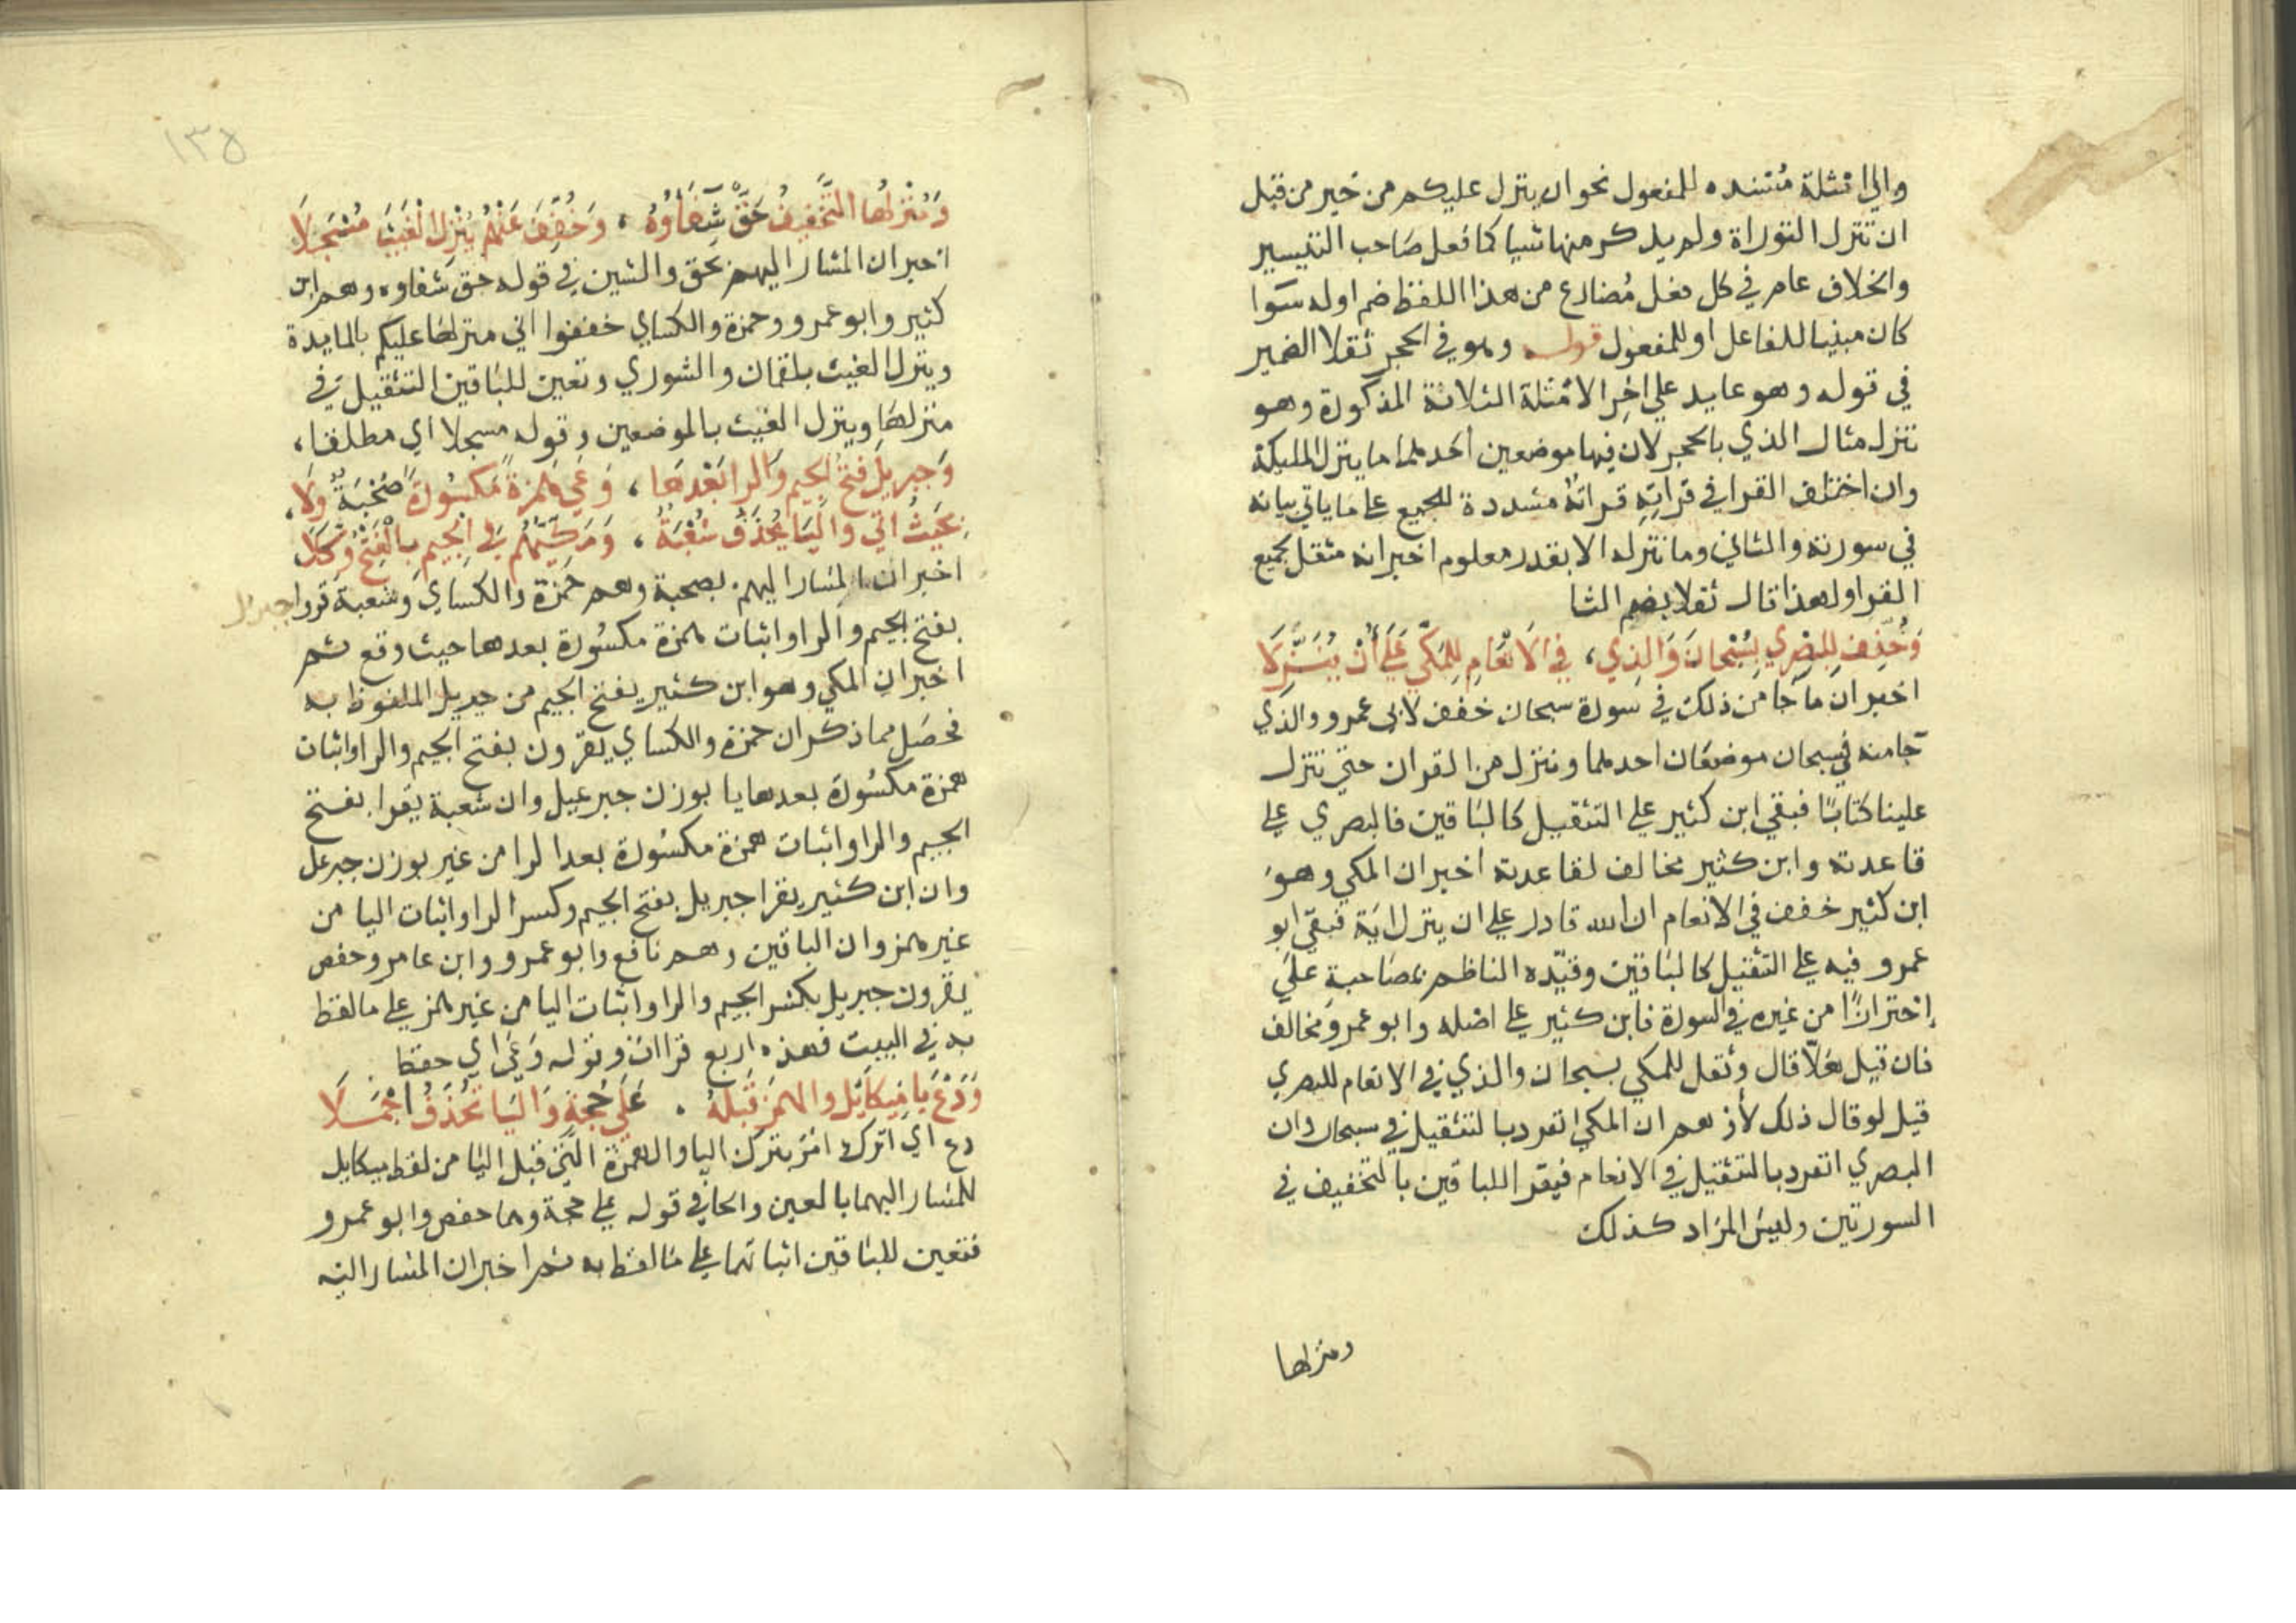 والي امثلة مسنده للمفعول نحو ان ينزل عليكم من خير من قبل
ان تنزل التوراة ولم يذكر منها شيا كما فعل صاحب التيسير
والخلاف عام في كل فعل مضارع من هذا اللفظ ضم اوله سوا
كان مبنيا للفاعل او للمفعول قوله وهو في الحجر ثقلا الضمير
في قوله وهو عايد علي اخر الامثلة الثلاثة المذكورة وهو
ننزل مثال الذي بالحجر لان فيها موضعين احدهما ما ينزل المليكة
وان اختلف القرا في قراته قراته مشددة للجميع علي ما ياتي بيانه
في سورته والثاني وما ننزله الا بقدر معلوم اخبر انه مثقل لجميع
القرا ولهذا قال ثقلا بضم الثا
وَخُفِّفَ لِلبَصْرِي بِسُبْحَانَ وَالذِي، في الاَنْعَامِ لِلمَكِّي عَلَي أَنْ يُنَزِّلَا
اخبر ان ما جا من ذلك في سورة سبحان خفف لابي عمرو والذي
جا منه في سبحان موضعان احدهما وننزل من القران حتي تنزل
علينا كتابًا فبقي ابن كثير علي التثقيل كالباقين فالبصري علي
قاعدته وابن كثير مخالف لقاعدته اخبر ان المكي وهو
ابن كثير خفف في الانعام ان الله قادر علي ان ينزل اية فبقي ابو
عمرو فيه علي التثقيل كالباقين وقيّده الناظم بمصاحبة علي
إحترازًا من غيره في السورة فابن كثير علي اصله وابو عمرو مخالف
فان قيل هلّا قال وثقل للمكي بسبحان والذي في الانعام للبصري
قيل لو قال ذلك لأوهم ان المكي انفرد بالتثقيل في سبحان وان
البصري انفرد بالتثقيل في الانعام فيقرا للباقين بالتخفيف في
السورتين وليس المراد كذلك
ومنزلها
١٣٥
وَمُنْزِلُهَا التَّخْفِيفُ حَقٌّ شِفَاؤُهُ، وَخُفِّفَ عَنْهُمْ يُنْزِلُ الْغَيْثَ مُسْجَلَا
اخبر ان المشار اليهم بحق والشين في قوله حق شفاوه وهم ابن
كثير وابو عمرو وحمزة والكساي خففوا اني منزلها عليكم بالمايدة
وينزل الغيث بلقمان والشوري وتعين للباقين التثقيل في
منزلها وينزل الغيث بالموضعين وقوله مسجلا اي مطلقا،
وَجِبرِيلَ فتحُ الجيم والرا بَعْدَهَا، وَعَي هَمزةً مَكسُورَةً صُحْبَةٌ وِلَا،
بِحَيثُ اتي واليَا يَحْذِفُ شُعْبَةٌ، وَمَكِّيُّهُم في الجيمِ بِالفَتْحِ وُكِّلَا
اخبر ان المشار اليهم بصحبة وهم حمزة والكساي وشعبة قروا جبريل
بفتح الجيم والرا واثبات همزة مكسورة بعدها حيث وقع ثم
اخبر ان المكي وهو ابن كثير يفتح الجيم من جبريل الملفوظ به
فحصل مما ذكر ان حمزة والكساي يقرون بفتح الجيم والرا واثبات
همزة مكسورة بعدها يا بوزن جبرعيل وان شعبة يقرا بفتح
الجيم والرا واثبات همزة مكسورة بعد الرا من غير بوزن جبرعل
وان ابن كثير يقرا جبريل بفتح الجيم وكسر الرا واثبات اليا من
غير همز وان الباقين وهم نافع وابو عمرو وابن عامر وحفص
يقرون جبريل بكسر الجيم والرا واثبات اليا من غير همز علي ما لفظ
به في البيت فهذه اربع قراات وقوله وعي اي حفظ
وَدَعْ يَا مِيكَائِل والهمز قَبلَهُ . عَلَي حُجةٍ وَاليَا تُحْذَفُ اجْمَلَا
دع اي اترك امر بترك اليا والهمزة التي قبل اليا من لفظ ميكايل
للمشار اليهما بالعين والحا في قوله علي حجة وهما حفص وابو عمرو
فتعين للباقين اثباتهما علي ما لفظ به ثم اخبر ان المشار اليه